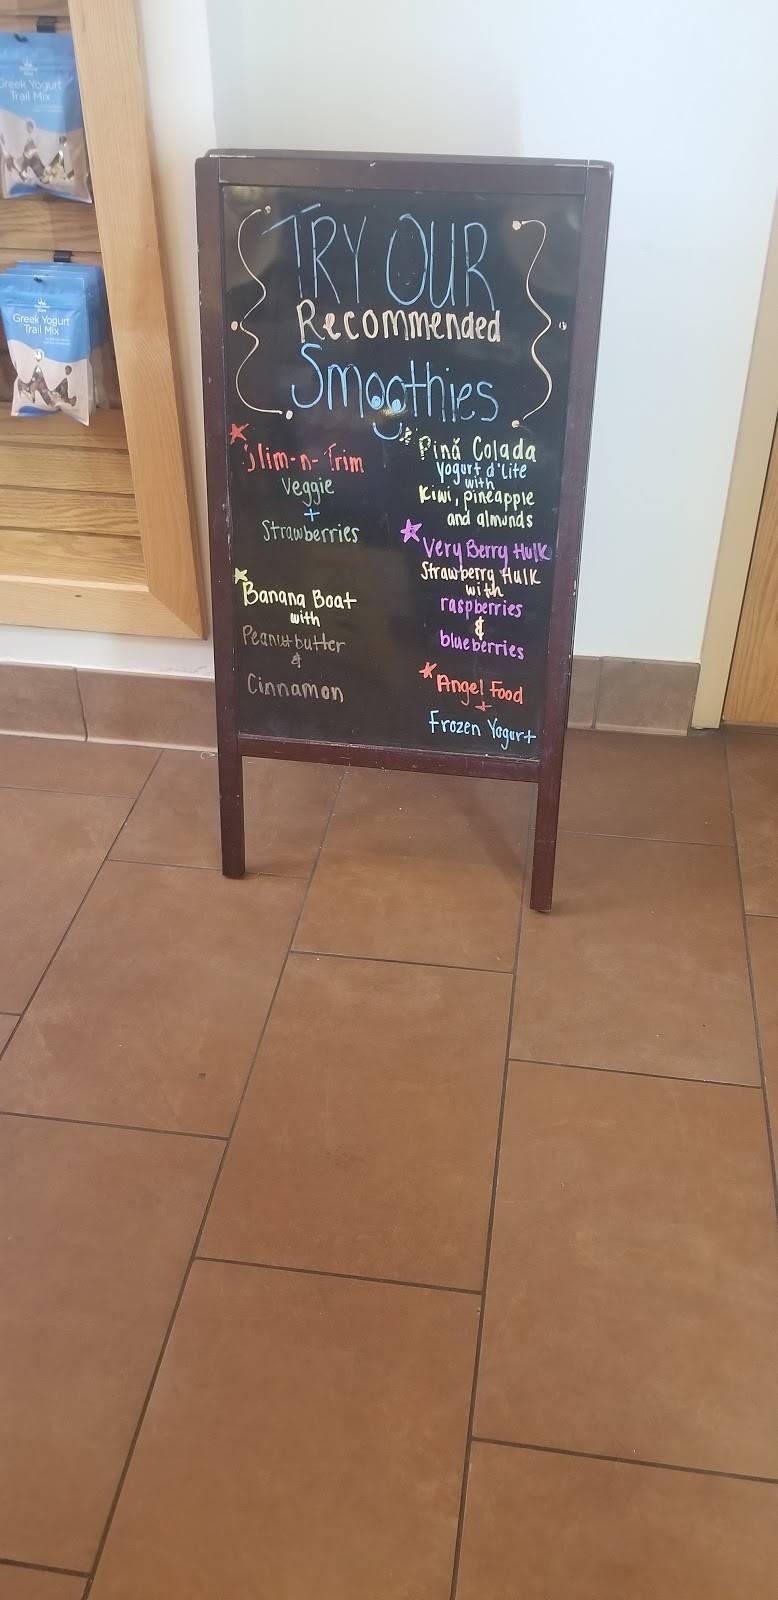 TRY OUR
Recommended
Smoothies
Slim-n-Trim
Veggie
+
Strawberries
Banana Boat
with
Peanutbutter
&
Cinnamon
Pinã Colada
Yogurt d'lite
with
Kiwi, pineapple
and almonds
Very Berry Hulk
Strawberry Hulk
with
raspberries
&
blueberries
Angel Food
+
Frozen Yogurt
Greek Yogurt
Trail Mix
Greek Yogurt
Trail Mix